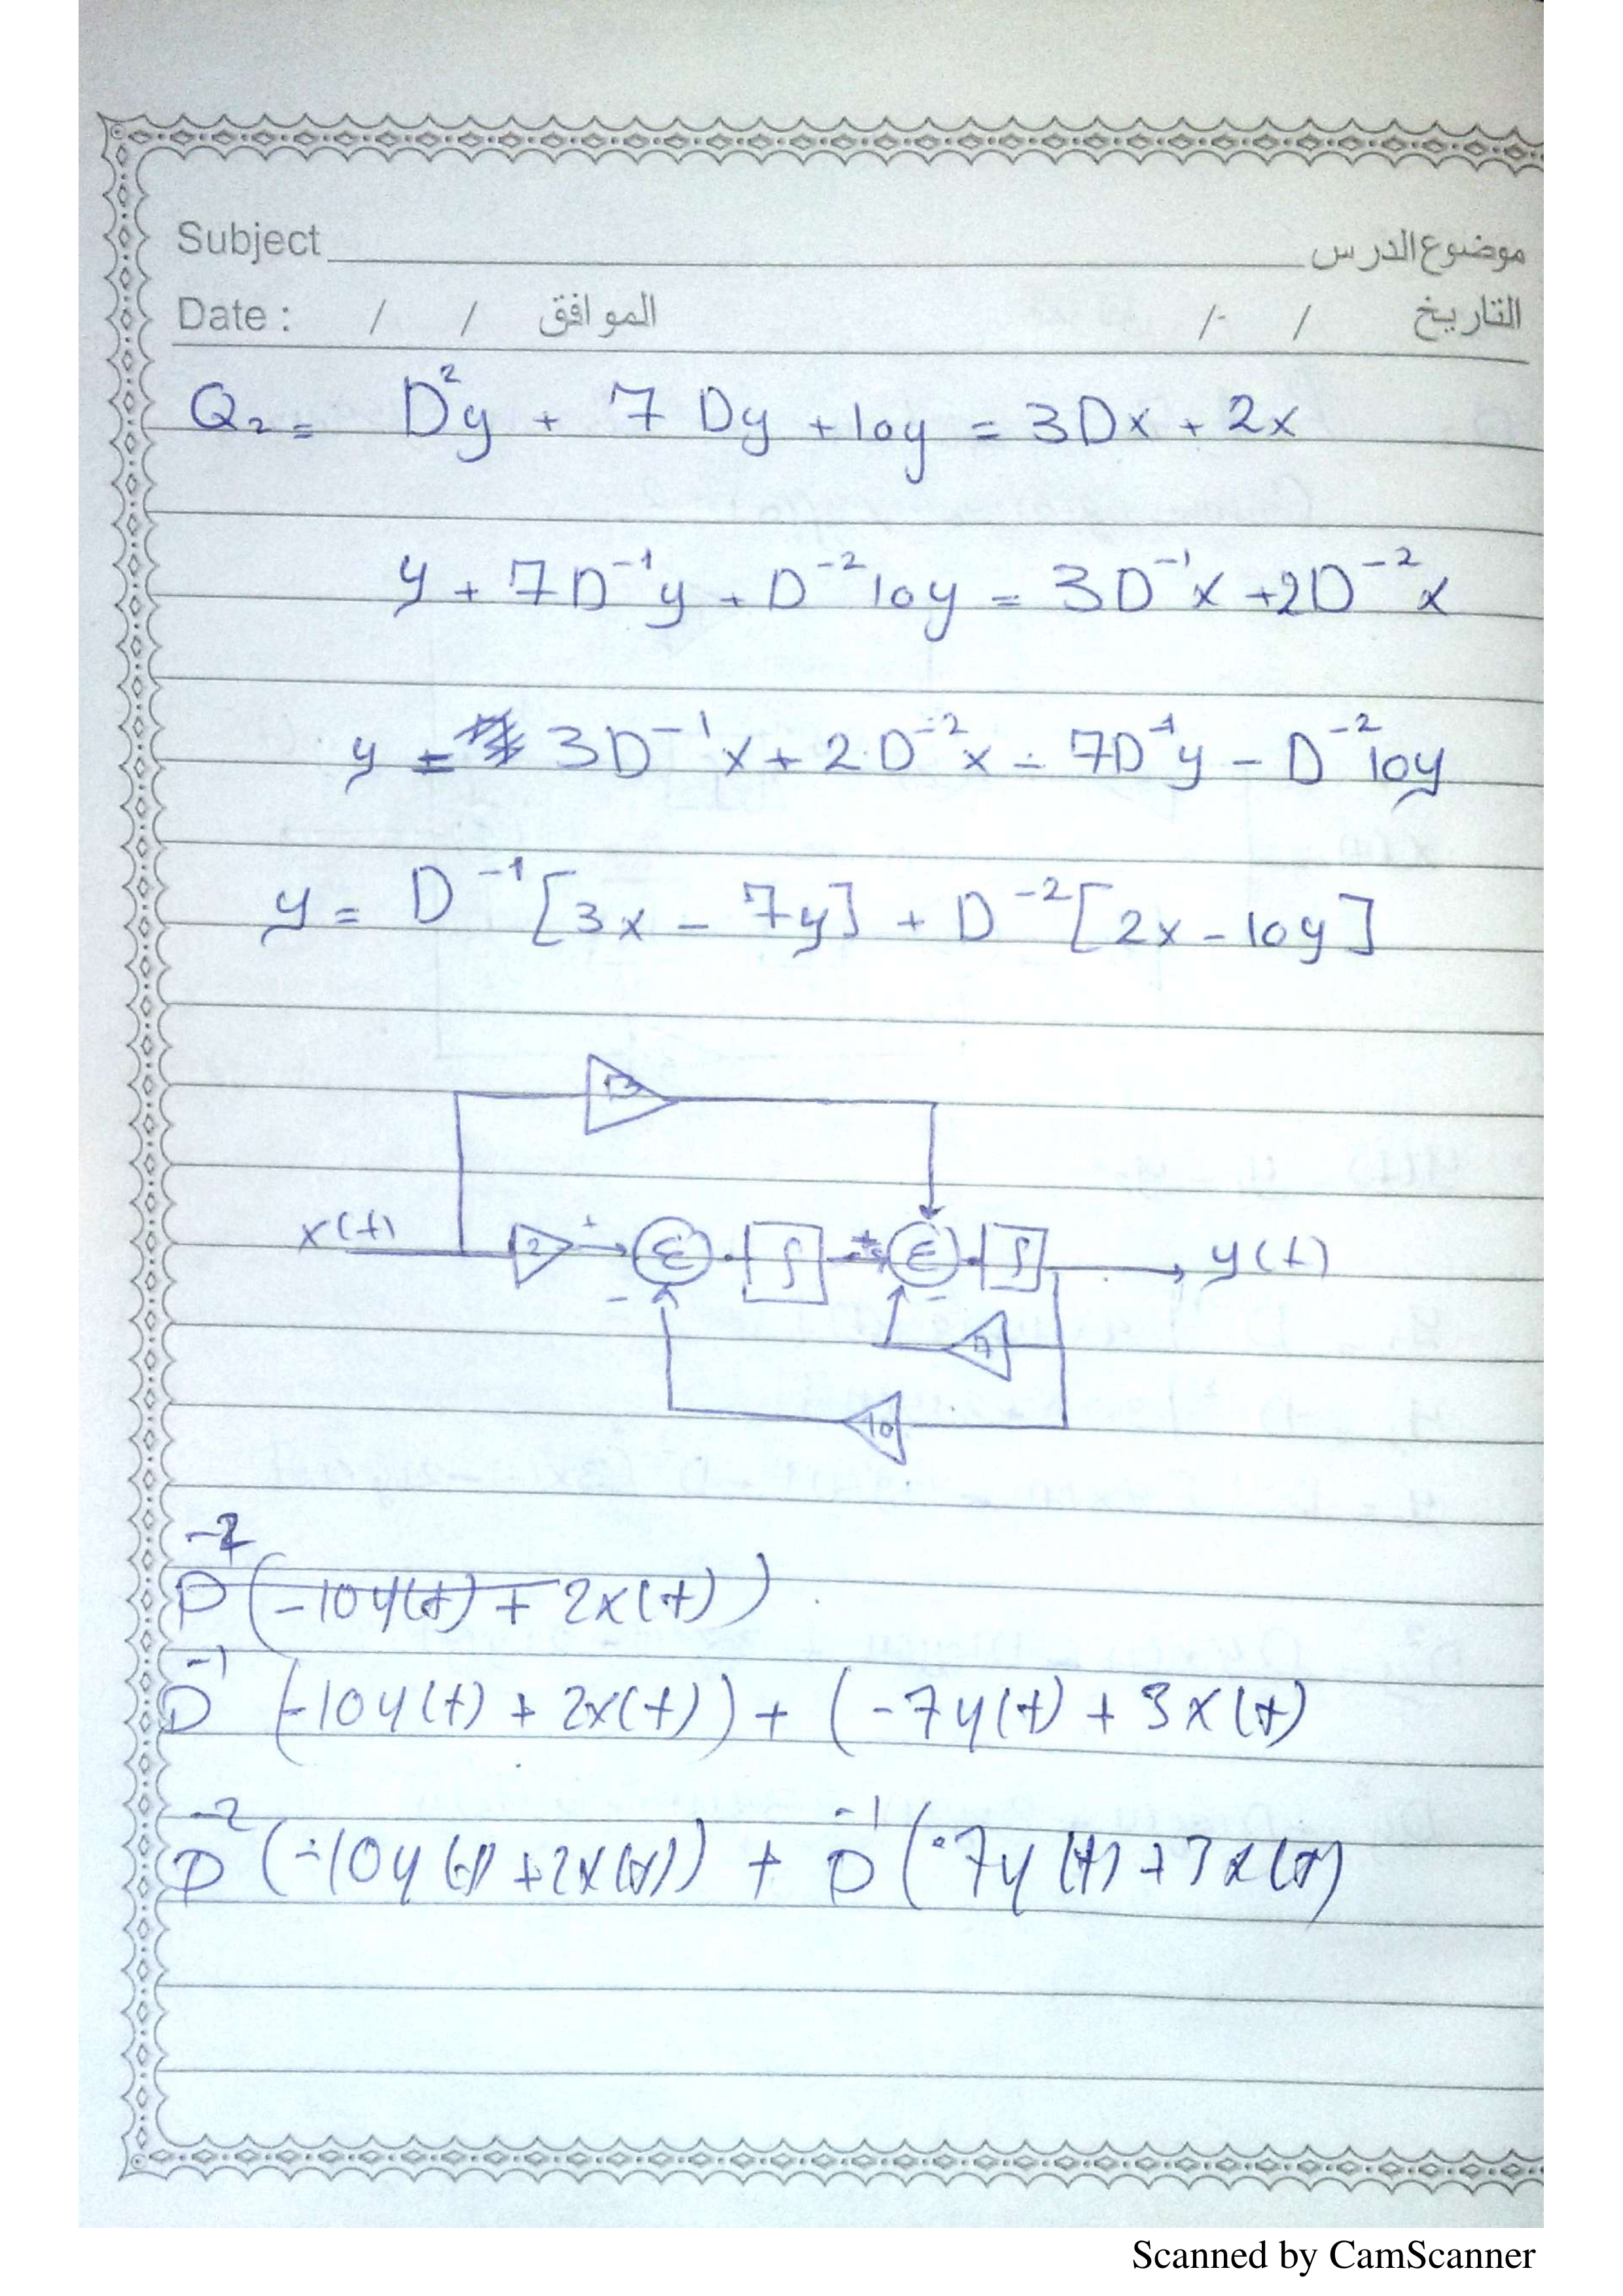 Subject موضوع الدرس
Date : / / الموافق / / التاريخ
Q2 = D²y + 7 Dy + 10y = 3Dx + 2x
y + 7D⁻¹y + D⁻²10y = 3D⁻¹x + 2D⁻²x
y = 3D⁻¹x + 2D⁻²x - 7D⁻¹y - D⁻²10y
y = D⁻¹[3x - 7y] + D⁻²[2x - 10y]
3
x(t) 2 + Σ ∫ + Σ ∫ y(t)
- -
7
10
D⁻²(-10y(t) + 2x(t))
D⁻¹(-10y(t) + 2x(t)) + (-7y(t) + 3x(t)
D⁻²(-10y(t) + 2x(t)) + D⁻¹(-7y(t) + 3x(t)
Scanned by CamScanner